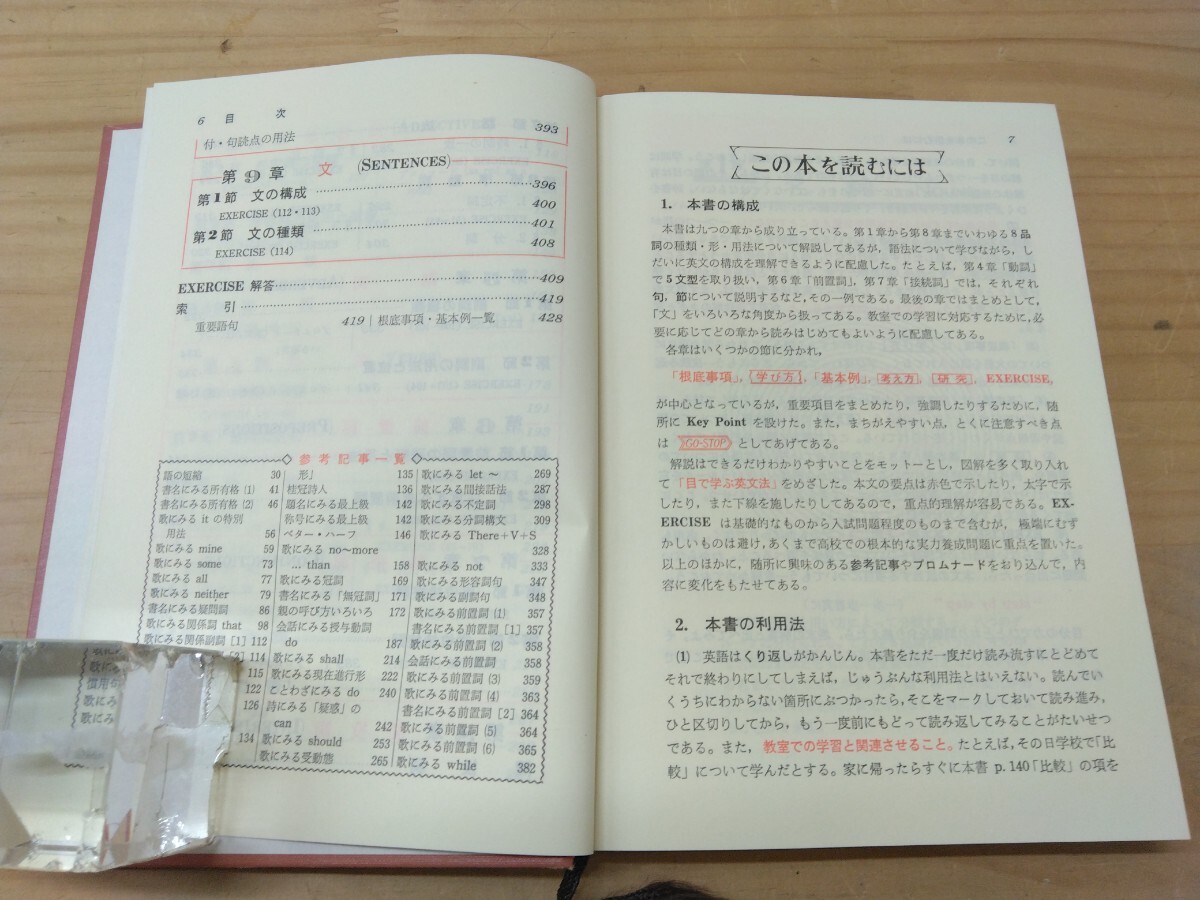 6 目 次
付・句読点の用法 393
第9章 文 (SENTENCES)
第1節 文の構成 396
EXERCISE (112・113) 400
第2節 文の種類 401
EXERCISE (114) 408
EXERCISE 解答 409
索 引 419
重要語句 419 | 根底事項・基本例一覧 428
参考記事一覧
語の短縮 30
書名にみる所有格 (1) 41
書名にみる所有格 (2) 46
歌にみる it の特別
用法 56
歌にみる mine 59
歌にみる some 73
歌にみる all 77
歌にみる neither 79
書名にみる疑問詞 86
歌にみる関係詞 that 98
歌にみる関係副詞 [1] 112
114
115
122
126
134
形」 135
桂冠詩人 136
題名にみる最上級 142
称号にみる最上級 142
ベター・ハーフ 146
歌にみる no～more
… than 158
歌にみる冠詞 169
書名にみる「無冠詞」 171
親の呼び方いろいろ 172
会話にみる授与動詞
do 187
歌にみる shall 214
歌にみる現在進行形 222
ことわざにみる do 240
詩にみる「疑惑」の
can 242
歌にみる should 253
歌にみる受動態 265
歌にみる let ～ 269
歌にみる間接話法 287
歌にみる不定詞 298
歌にみる分詞構文 309
歌にみる There+V+S
328
歌にみる not 333
歌にみる形容詞句 347
歌にみる副詞句 348
歌にみる前置詞 (1) 357
書名にみる前置詞 [1] 357
歌にみる前置詞 (2) 358
会話にみる前置詞 358
歌にみる前置詞 (3) 359
歌にみる前置詞 (4) 363
書名にみる前置詞 [2] 364
歌にみる前置詞 (5) 364
歌にみる前置詞 (6) 365
歌にみる while 382
7
この本を読むには
1. 本書の構成
本書は九つの章から成り立っている。第1章から第8章までいわゆる8品
詞の種類・形・用法について解説してあるが，語法について学びながら，し
だいに英文の構成を理解できるように配慮した。たとえば，第4章「動詞」
で5文型を取り扱い，第6章「前置詞」，第7章「接続詞」では，それぞれ
句，節について説明するなど，その一例である。最後の章ではまとめとして，
「文」をいろいろな角度から扱ってある。教室での学習に対応するために，必
要に応じてどの章から読みはじめてもよいように配慮してある。
各章はいくつかの節に分かれ，
「根底事項」，学び方，「基本例」，考え方，研究，EXERCISE，
が中心となっているが，重要項目をまとめたり，強調したりするために，随
所に Key Point を設けた。また，まちがえやすい点，とくに注意すべき点
は GO-STOP としてあげてある。
解説はできるだけわかりやすいことをモットーとし，図解を多く取り入れ
て「目で学ぶ英文法」をめざした。本文の要点は赤色で示したり，太字で示
したり，また下線を施したりしてあるので，重点的理解が容易である。EX-
ERCISE は基礎的なものから入試問題程度のものまで含むが，極端にむず
かしいものは避け，あくまで高校での根本的な実力養成問題に重点を置いた。
以上のほかに，随所に興味のある参考記事やプロムナードをおり込んで，内
容に変化をもたせてある。
2. 本書の利用法
(1) 英語はくり返しがかんじん。本書をただ一度だけ読み流すにとどめて
それで終わりにしてしまえば，じゅうぶんな利用法とはいえない。読んでい
くうちにわからない箇所にぶつかったら，そこをマークしておいて読み進み，
ひと区切りしてから，もう一度前にもどって読み返してみることがたいせつ
である。また，教室での学習と関連させること。たとえば，その日学校で「比
較」について学んだとする。家に帰ったらすぐに本書 p.140「比較」の項を